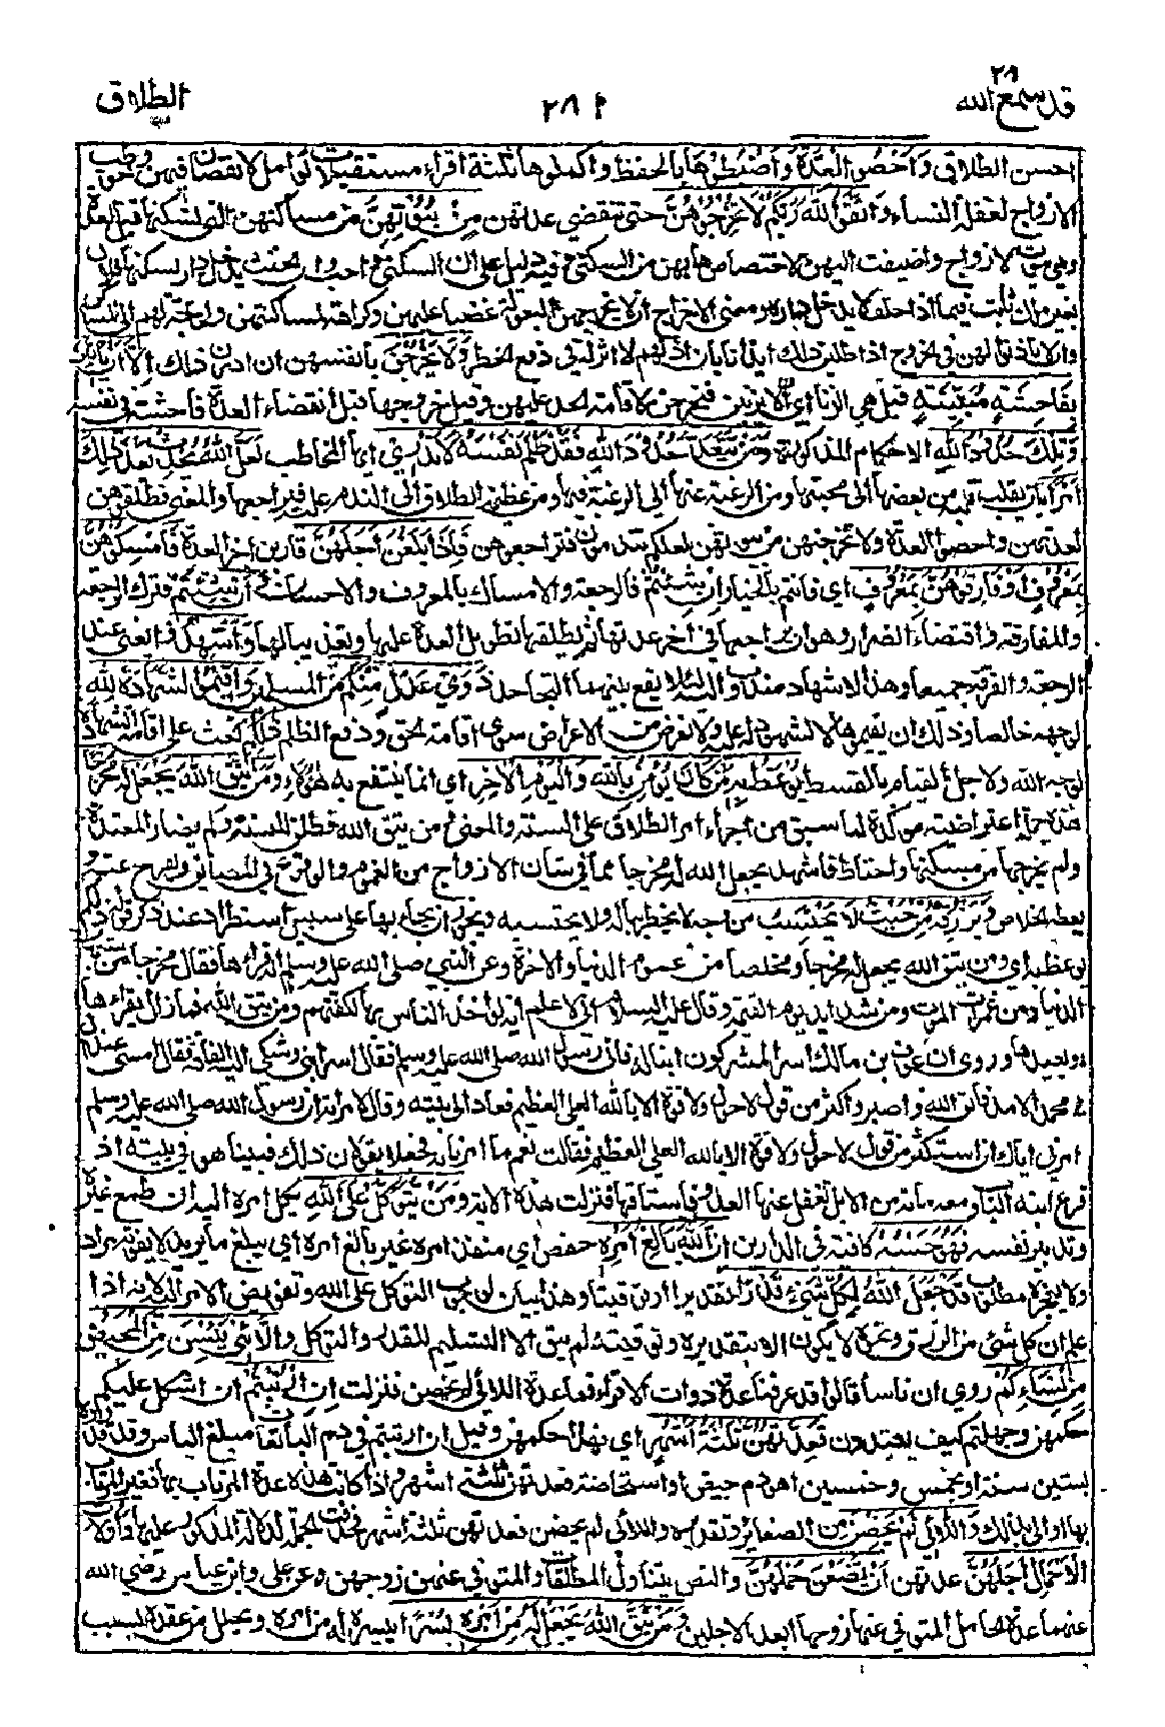 قد سمع الله ٢٨
٢٨١
الطلاق
احسن الطلاق وَاَحْصُوا الْعِدَّةَ وَاضبطوها بالحفظ واكملوها ثلثة اقراء مستقبلات كوامل لا نقصان فيهن وخوطب
الازواج لغفلة النساء وَاتَّقُوا اللهَ رَبَّكُمْ لَا تُخْرِجُوْهُنَّ حتى تنقضي عدتهن مِنْ بُيُوْتِهِنَّ من مساكنهن التي يسكنها قبل العدة
وهي بيوت الازواج واضيفت اليهن لاختصاصها بهن من السكنى وفيه دليل على ان السكنى واجبة وان الحنث بدخول دار يسكنها فلان
بغير ملك ثابت فيما اذا حلف لا يدخل داره ومعنى الاخراج ان لا يخرجهن البعولة غضبا عليهن وكراهة لمساكنتهن او لحاجة لهم الى المساكن
وان لا ياذنوا لهن في الخروج اذا طلبن ذلك ايذانا بان اذنهم لا اثر له في دفع الحظر وَلَا يَخْرُجْنَ بانفسهن ان اردن ذلك اِلَّا اَنْ يَّاْتِيْنَ
بِفَاحِشَةٍ مُّبَيِّنَةٍ قيل هي الزنا اي الا ان يزنين فيخرجن لاقامة الحد عليهن وقيل خروجها قبل انقضاء العدة فاحشة في نفسه
وَتِلْكَ حُدُوْدُ اللهِ الاحكام المذكورة وَمَنْ يَّتَعَدَّ حُدُوْدَ اللهِ فَقَدْ ظَلَمَ نَفْسَهٗ لَا تَدْرِيْ ايها المخاطب لَعَلَّ اللهَ يُحْدِثُ بَعْدَ ذٰلِكَ
اَمْرًا بان يقلب قلبه من بغضها الى محبتها ومن الرغبة عنها الى الرغبة فيها ومن عزيمة الطلاق الى الندم عليه فيراجعها والمعنى فطلقوهن
لعدتهن واحصوا العدة ولا تخرجوهن من بيوتهن لعلكم تندمون فتراجعوهن فَاِذَا بَلَغْنَ اَجَلَهُنَّ قاربن اخر العدة فَاَمْسِكُوْهُنَّ
بِمَعْرُوْفٍ اَوْ فَارِقُوْهُنَّ بِمَعْرُوْفٍ اي فانتم بالخيار ان شئتم فالرجعة والامساك بالمعروف والاحسان وان شئتم فترك الرجعة
والمفارقة واتقاء الضرار وهو ان يراجعها في اخر عدتها ثم يطلقها تطويلا للعدة عليها وتعذيبا لها وَاَشْهِدُوْا يعني عند
الرجعة والفرقة جميعا وهذا الاشهاد مندوب اليه لئلا يقع بينهما التجاحد ذَوَيْ عَدْلٍ مِّنْكُمْ من المسلمين وَاَقِيْمُوا الشَّهَادَةَ لِلّٰهِ
لوجهه خالصا وذلك ان يقيموها لا للمشهود له ولا للمشهود عليه ولا لغرض من الاغراض سوى اقامة الحق ودفع الظلم ذٰلِكُمْ الحث على اقامة الشهادة
لوجه الله ولاجل القيام بالقسط يُوْعَظُ بِهٖ مَنْ كَانَ يُؤْمِنُ بِاللهِ وَالْيَوْمِ الْاٰخِرِ اي انما ينتفع به هؤلاء وَمَنْ يَّتَّقِ اللهَ يَجْعَلْ لَّهٗ مَخْرَجًا
هذه جملة اعتراضية مؤكدة لما سبق من اجراء امر الطلاق على السنة والمعنى ومن يتق الله فطلق للسنة ولم يضار المعتدة
ولم يخرجها من مسكنها واحتاط فاشهد يجعل الله له مخرجا مما في شان الازواج من الغموم والوقوع في المضايق ويفرج عنه و
يعطه الخلاص وَيَرْزُقْهُ مِنْ حَيْثُ لَا يَحْتَسِبُ من وجه لا يخطر بباله ولا يحتسبه ويجوز ان يجاء بها على سبيل استطراد عند ذكر قوله ذلكم
يوعظ به اي ومن يتق الله يجعل له مخرجا ومخلصا من غموم الدنيا والاخرة وعن النبي صلى الله عليه وسلم انه قراها فقال مخرجا من شبهات
الدنيا ومن غمرات الموت ومن شدائد يوم القيمة وقال عليه السلام اني لاعلم اية لو اخذ الناس بها لكفتهم ومن يتق الله فما زال يقراها
ويعيدها وروي ان عوف بن مالك اسر المشركون ابنا له فاتى رسول الله صلى الله عليه وسلم فقال اسر ابني وشكى اليه الفاقة فقال ما امسى عند ال
محمد الا مد فاتق الله واصبر واكثر من قول لا حول ولا قوة الا بالله العلي العظيم فعاد الى بيته وقال لامراته ان رسول الله صلى الله عليه وسلم
امرني واياك ان نستكثر من قول لا حول ولا قوة الا بالله العلي العظيم فقالت نعم ما امرنا به فجعلا يقولان ذلك فبينا هو في بيته اذ
قرع ابنه الباب ومعه مائة من الابل تغفل عنها العدو فاستاقها فنزلت هذه الاية وَمَنْ يَّتَوَكَّلْ عَلَى اللهِ يكل امره اليه عن طمع غيره
وتدبير نفسه فَهُوَ حَسْبُهٗ كافيه في الدارين اِنَّ اللهَ بَالِغُ اَمْرِهٖ حفص اي منفذ امره غير بالغ امره اي يبلغ ما يريد لا يفوته مراد
ولا يعجزه مطلوب قَدْ جَعَلَ اللهُ لِكُلِّ شَيْءٍ قَدْرًا تقديرا او توقيتا وهذا بيان لوجوب التوكل على الله وتفويض الامر اليه لانه اذا
علم ان كل شئ من الرزق ونحوه لا يكون الا بتقديره وتوقيته لم يبق الا التسليم للقدر والتوكل وَالّٰئِيْ يَئِسْنَ مِنَ الْمَحِيْضِ
مِنْ نِّسَاءِكُمْ روي ان ناسا قالوا قد عرفنا عدة ذوات الاقراء فما عدة اللائي لم يحضن فنزلت اِنِ ارْتَبْتُمْ ان اشكل عليكم
حكمهن وجهلتم كيف يعتددن فَعِدَّتُهُنَّ ثَلٰثَةُ اَشْهُرٍ اي فهذا حكمهن وقيل ان ارتبتم في دم البالغات مبلغ الياس وقد قدروه
بستين سنة او بخمس وخمسين اهو دم حيض او استحاضة فعدتهن ثلثة اشهر واذا كانت هذه عدة المرتاب بها فغير المرتاب
بها اولى بذلك وَّالّٰئِيْ لَمْ يَحِضْنَ هن الصغائر وتقديره واللائي لم يحضن فعدتهن ثلثة اشهر فحذفت الجملة لدلالة المذكور عليها وَاُولَاتُ
الْاَحْمَالِ اَجَلُهُنَّ عدتهن اَنْ يَّضَعْنَ حَمْلَهُنَّ والنص يتناول المطلقات والمتوفى عنهن زوجهن وعن علي وابن عباس رضي الله
عنهما عدة الحامل المتوفى عنها زوجها ابعد الاجلين وَمَنْ يَّتَّقِ اللهَ يَجْعَلْ لَّهٗ مِنْ اَمْرِهٖ يُسْرًا ييسر له من امره ويحلل من عقده بسبب